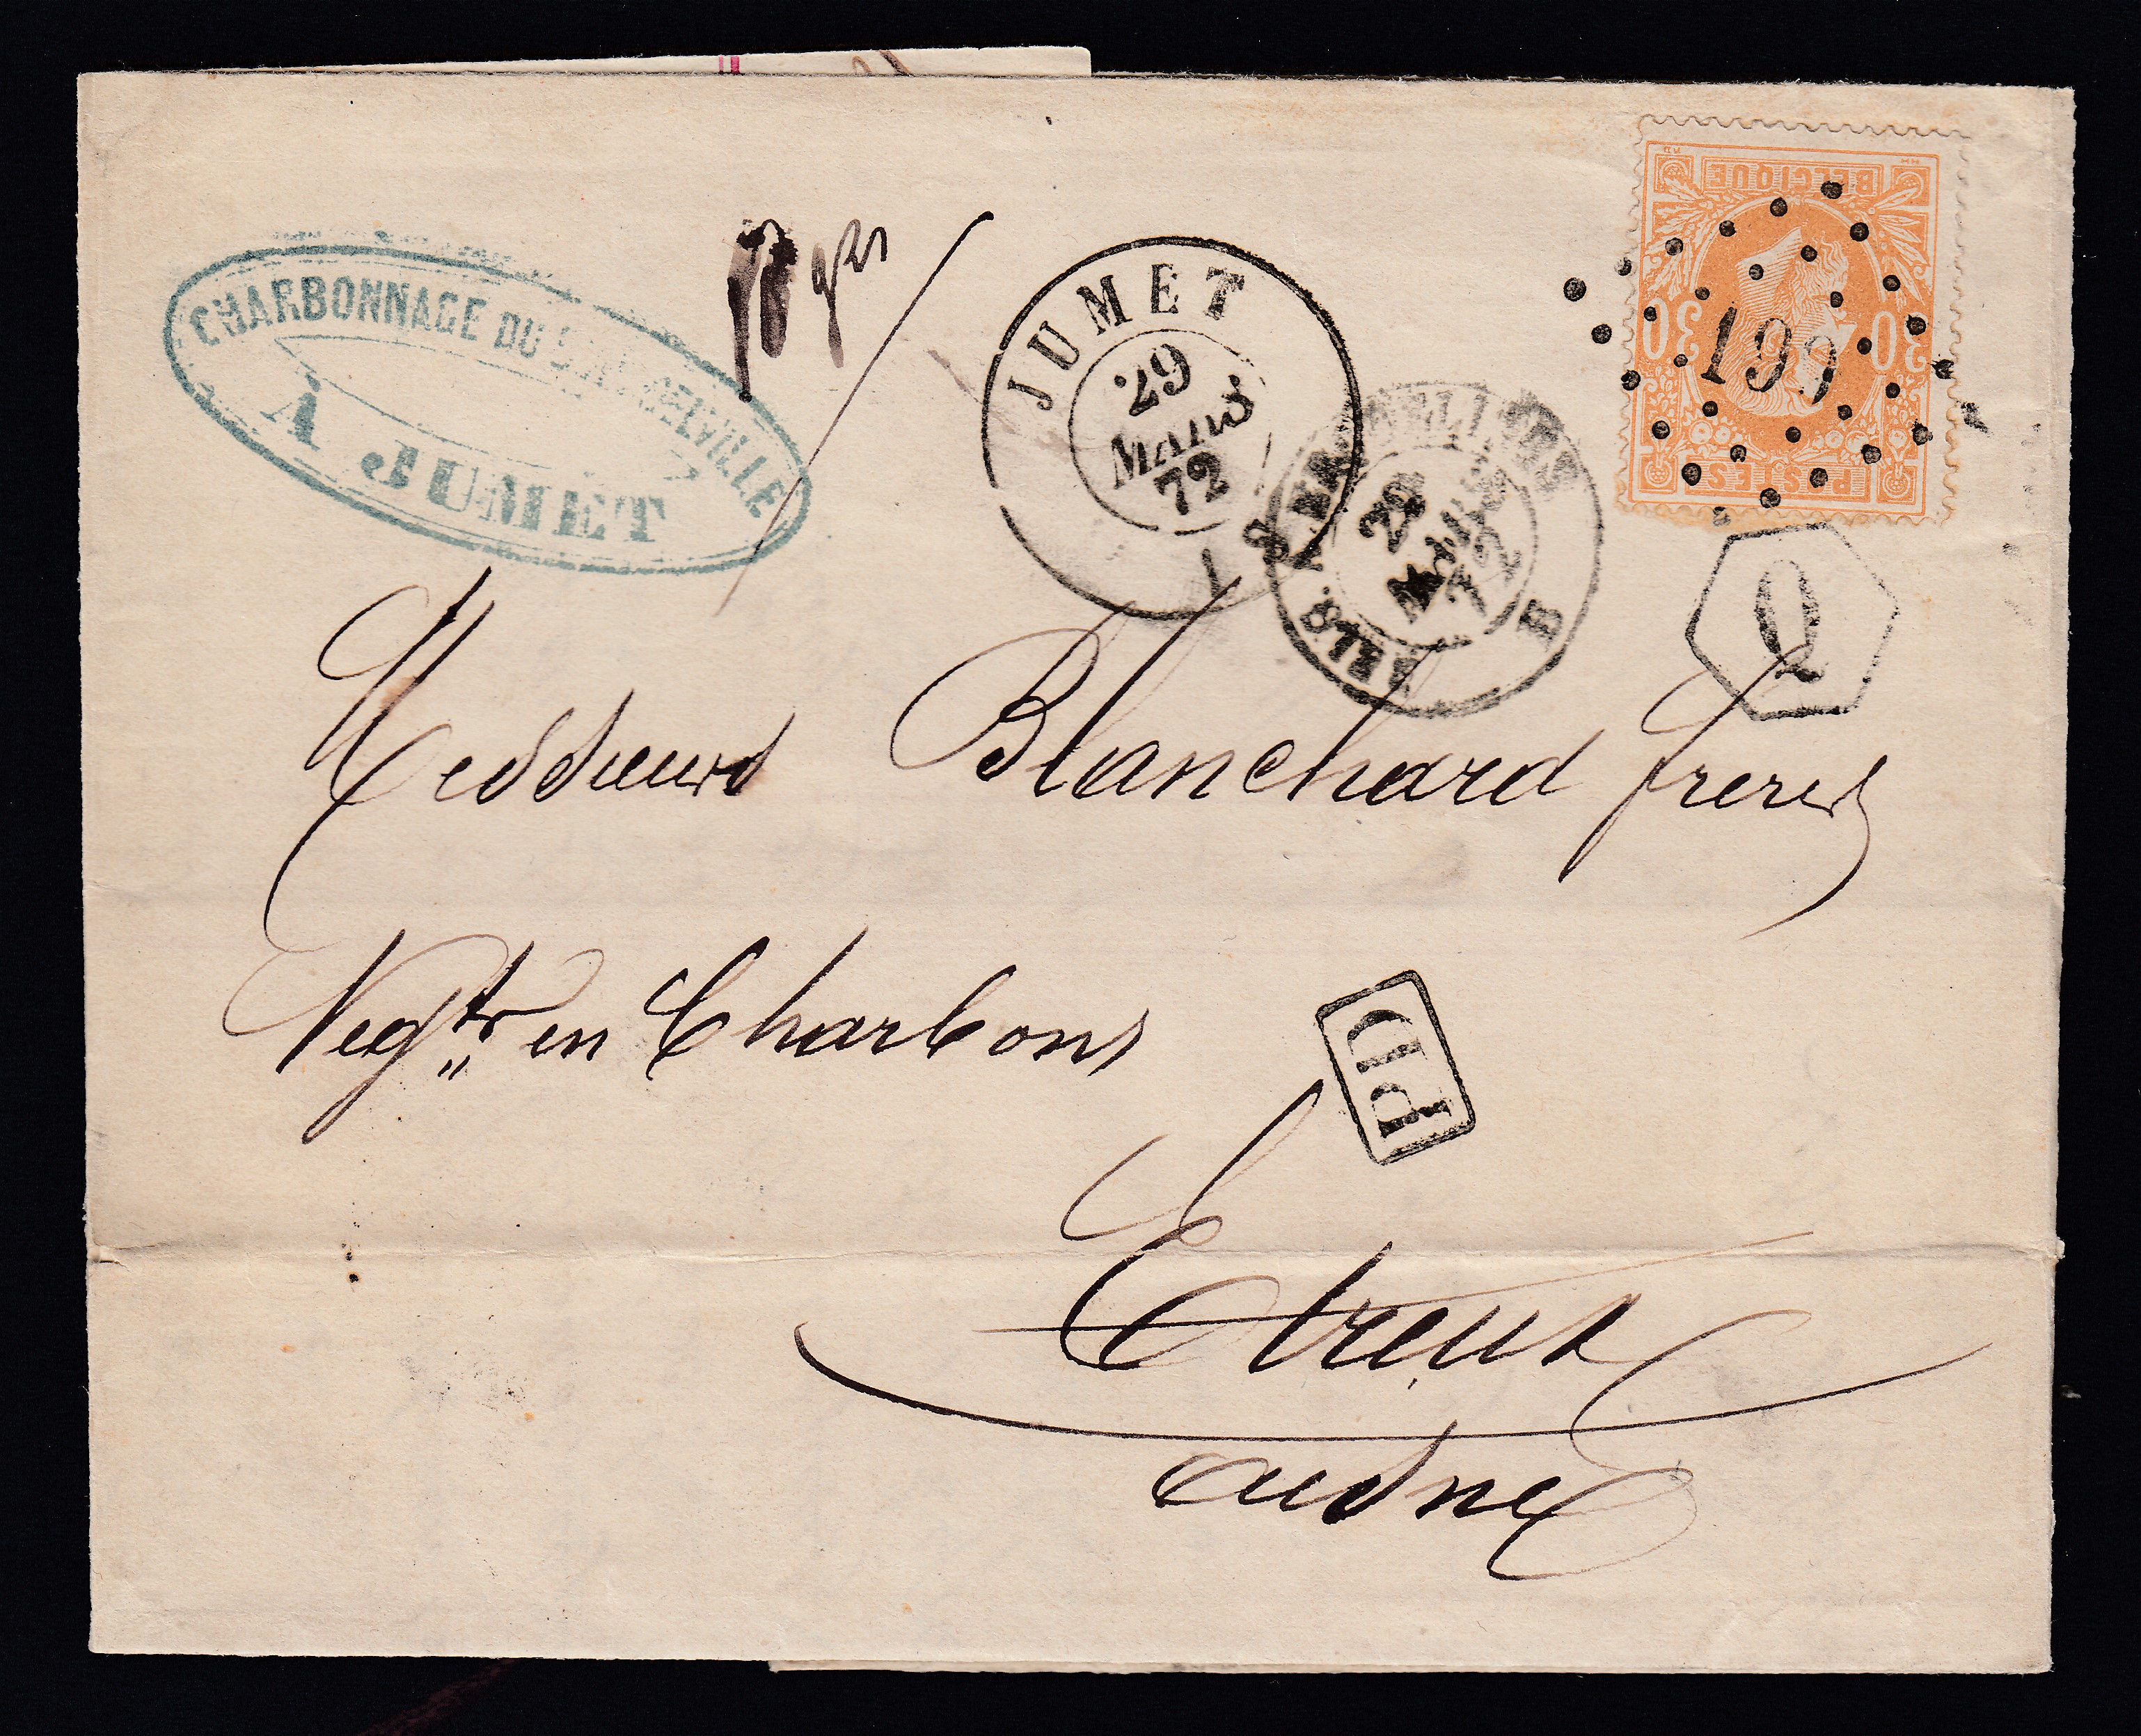 CHARBONNAGE DU
À JUMET
grs
JUMET
29
MARS
72
BELG. A MARSEILLES
29
MARS
72
B
BELGIQUE
30 30
199
POSTES
Q
Messieurs Blanchard frères
Negts en Charbons
PD
Etreux
aisne